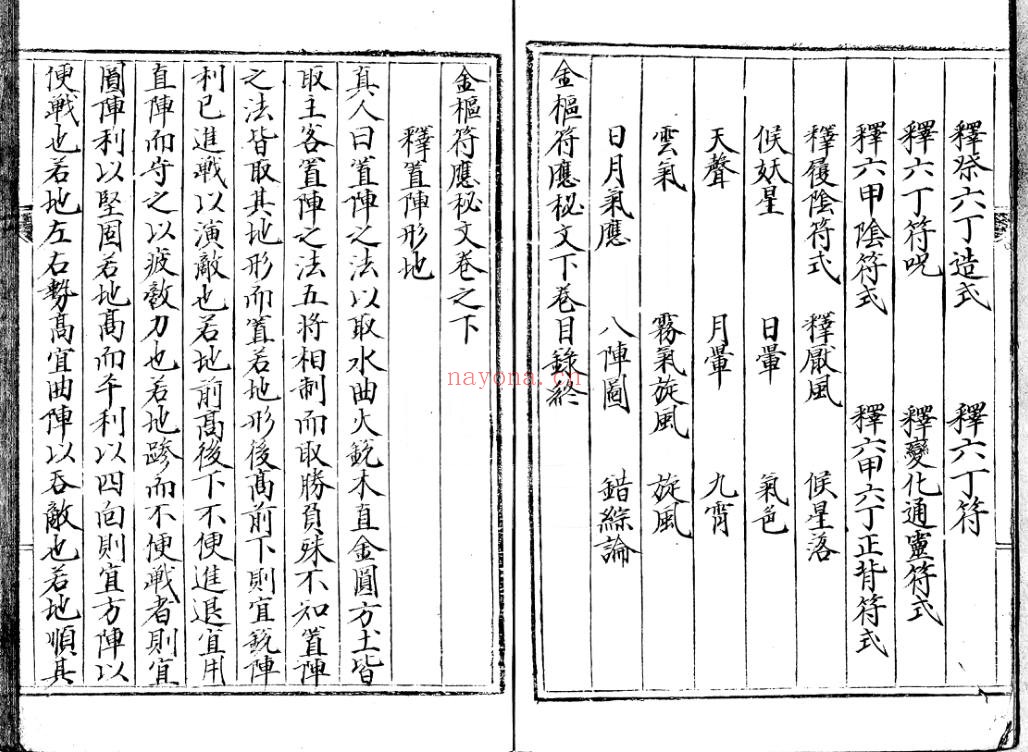 釋祭六丁造式　釋六丁符
釋六丁符呪　釋變化通靈符式
釋六甲陰符式　釋六甲六丁正背符式
釋履陰符式　釋厭風　候星落
候妖星　日暈　氣色
天聲　月暈　九霄
雲氣　霧氣旋風　旋風
日月氣應　八陣圖　錯綜論
金樞符應秘文下卷目錄終
金樞符應秘文卷之下
釋置陣形地
真人曰置陣之法以取水曲火銳木直金圓方土皆
取主客置陣之法五將相制而取勝負殊不知置陣
之法皆取其地形而置若地形後高前下則宜銳陣
利已進戰以演敵也若地前高後下不便進退宜用
直陣而守之以疲敵刀也若地跡而不便戰者則宜
圓陣利以堅固若地高而平利以四向則宜方陣以
便戰也若地左右勢高宜曲陣以吞敵也若地順其
nayona.cn